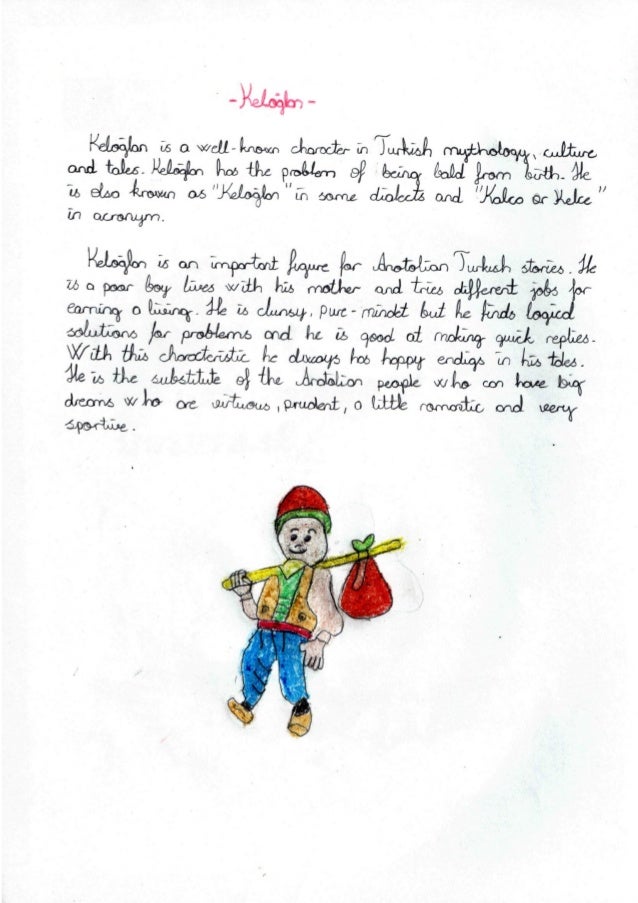 - Keloğlan -
Keloğlan is a well-known character in Turkish mythology, culture
and tales. Keloğlan has the problem of being bald from birth. He
is also known as "Keloğlan" in some dialects and "Kalco or Kelce"
in acronym.
Keloğlan is an important figure for Anatolian Turkush stories. He
is a poor boy lives with his mother and tries different jobs for
earning a living. He is clunsy, pure-mindet but he finds logical
solutions for problems and he is good at making quick replies.
With this characteristic he always has happy endigs in his tales.
He is the substitute of the Andolian people who can have big
dreams who are virtuous, prudent, a little romantic and very
sportive.